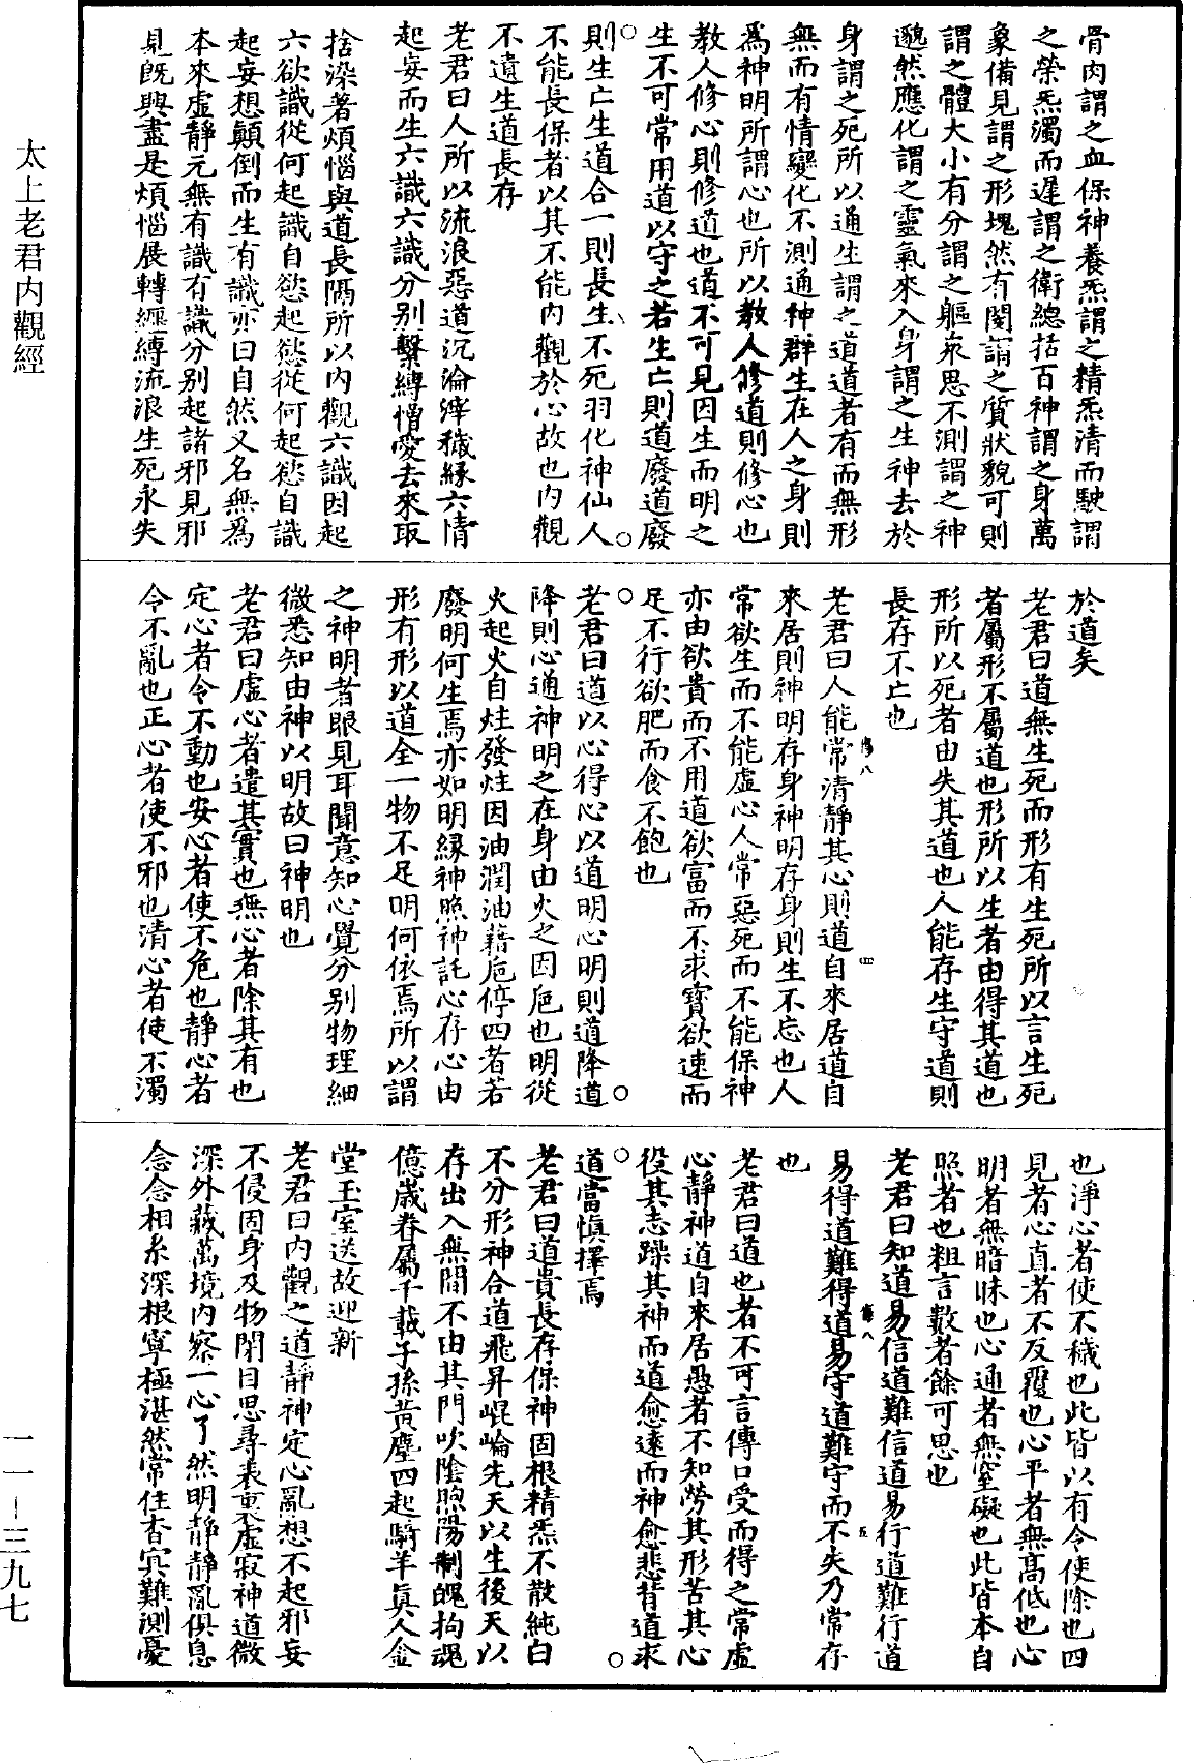 骨肉謂之血保神養炁謂之精炁清而駛謂
之榮炁濁而遲謂之衛總括百神謂之身萬
象備見謂之形塊然有閡謂之質狀貌可則
謂之體大小有分謂之軀衆思不測謂之神
邈然應化謂之靈氣來入身謂之生神去於
身謂之死所以通生謂之道道者有而無形
無而有情變化不測通神群生在人之身則
爲神明所謂心也所以教人修道則修心也
教人修心則修道也道不可見因生而明之
生不可常用道以守之若生亡則道廢道廢
則生亡生道合一則長生不死羽化神仙人
不能長保者以其不能內觀於心故也內觀
不遺生道長存
老君曰人所以流浪惡道沉淪滓穢緣六情
起妄而生六識六識分别繫縛憎愛去來取
捨染著煩惱與道長隔所以內觀六識因起
六欲識從何起識自慾起慾從何起慾自識
起妄想顛倒而生有識亦曰自然又名無爲
本來虛靜元無有識有識分别起諸邪見邪
見旣興盡是煩惱展轉纏縛流浪生死永失
於道矣
老君曰道無生死而形有生死所以言生死
者屬形不屬道也形所以生者由得其道也
形所以死者由失其道也人能存生守道則
長存不亡也
老君曰人能常清靜其心則道自來居道自
來居則神明存身神明存身則生不忘也人
常欲生而不能虛心人常惡死而不能保神
亦由欲貴而不用道欲富而不求寶欲速而
足不行欲肥而食不飽也
老君曰道以心得心以道明心明則道降道
降則心通神明之在身由火之因巵也明從
火起火自炷發炷因油潤油藉巵停四者若
廢明何生焉亦如明緣神照神託心存心由
形有形以道全一物不足明何依焉所以謂
之神明者眼見耳聞意知心覺分别物理細
微悉知由神以明故曰神明也
老君曰虛心者遣其實也無心者除其有也
定心者令不動也安心者使不危也靜心者
令不亂也正心者使不邪也清心者使不濁
也淨心者使不穢也此皆以有令使除也四
見者心直者不反覆也心平者無高低也心
明者無暗昧也心通者無窒礙也此皆本自
照者也粗言數者餘可思也
老君曰知道易信道難信道易行道難行道
易得道難得道易守道難守而不失乃常存
也
老君曰道也者不可言傳口受而得之常虛
心靜神道自來居愚者不知勞其形苦其心
役其志躁其神而道愈遠而神愈悲背道求
道當慎擇焉
老君曰道貴長存保神固根精炁不散純白
不分形神合道飛昇崐崘先天以生後天以
存出入無間不由其門吹陰煦陽制魄拘魂
億歲眷屬千載子孫黃塵四起騎羊真人金
堂玉室送故迎新
老君曰內觀之道靜神定心亂想不起邪妄
不侵固身及物閉目思尋表裏虛寂神道微
深外藏萬境內察一心了然明靜靜亂俱息
念念相系深根寧極湛然常住杳冥難測憂
太上老君內觀經
一一－三九七